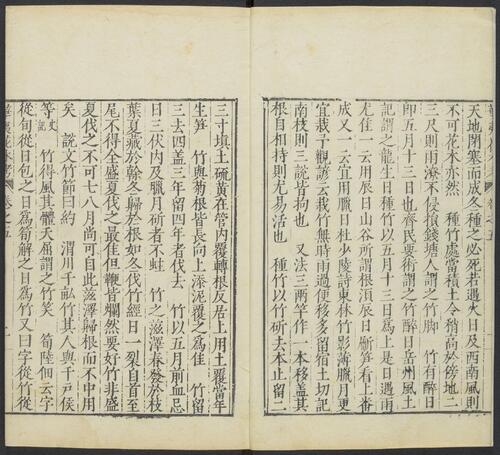 天地閉塞而成冬種之必死若遇火日及西南風則
不可花木亦然　種竹處當積土令稍高於傍地二
三尺則雨潦不侵損錢塘人謂之竹脚　竹有醉日
即五月十三日也齊民要術謂之竹醉日岳州風土
記謂之龍生日種竹以五月十三日為上是日遇雨
尤佳一云用辰日山谷所謂根須辰日斸笋看上番
成又一云宜用臘日杜少陵詩東林竹影薄臘月更
宜栽予觀諺云栽竹無時雨過便移多留宿土切記
南枝則三說皆拘也　又法三兩竿作一本移蓋其
根自相持則尤易活也　種竹以竹斫去本止留二
三寸填土硫黃在管内覆轉根反居上用土覆當年
生笋　竹與菊根皆長向上添泥覆之為佳　竹留
三去四蓋三年留四年者伐去　竹以五月前血忌
日三伏内及臘月斫者不蛀　竹之滋澤春發於枝
葉夏藏於幹冬歸於根如冬伐竹經日一裂自首至
尾不得全盛夏伐之最佳但鞭皆爛然要好竹非盛
夏伐之不可七八月尚可自此滋澤歸根而不中用
矣　說文竹節曰約　渭川千畝竹其人與千戶侯
等史記　竹得風其體夭屈謂之竹笑　筍陸佃云字
從旬從日包之日為筍解之日為竹又曰字從竹從